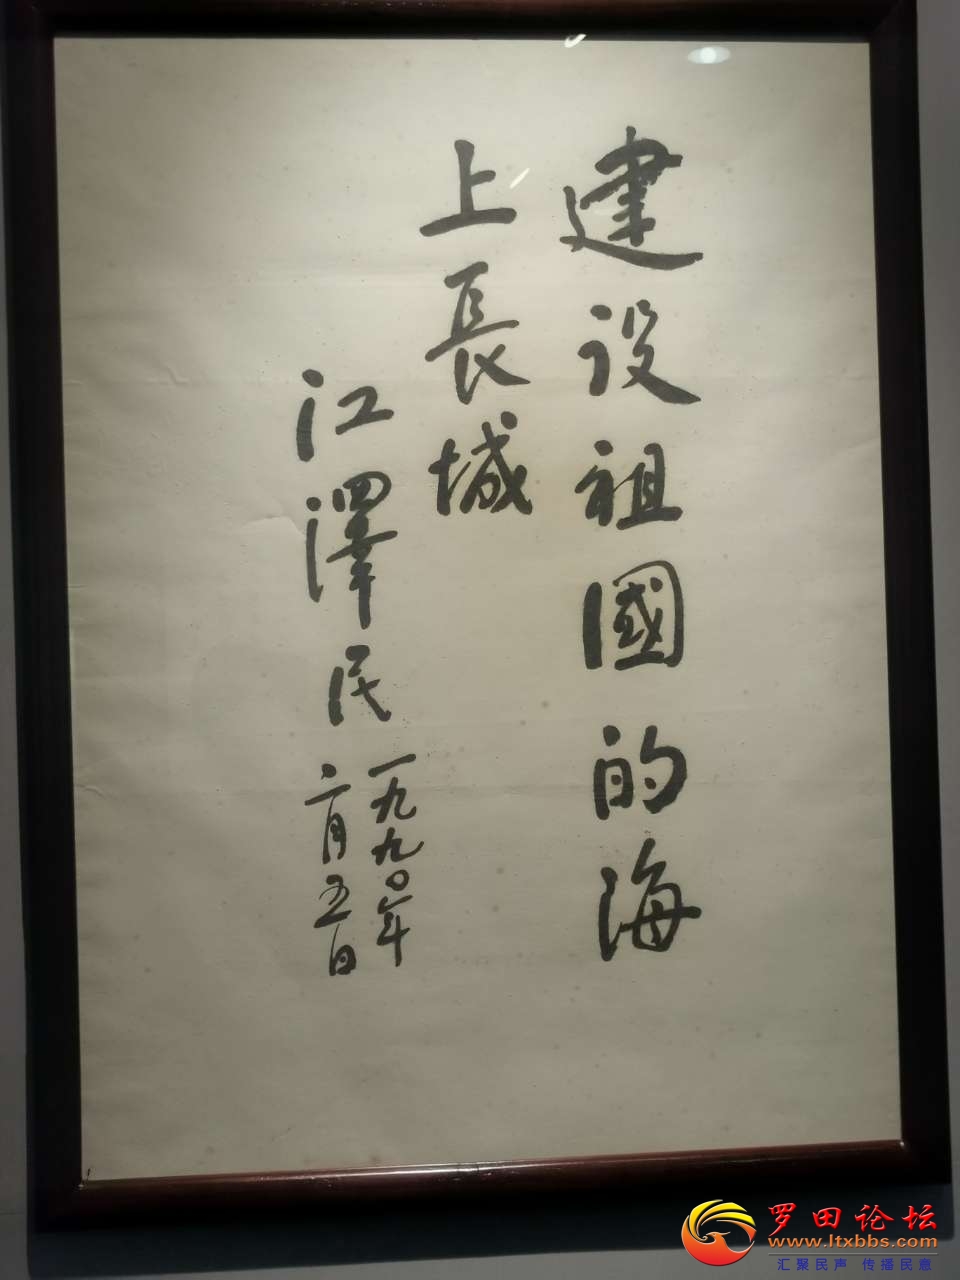 建设祖國的海
上長城
江澤民
一九九〇年
二月五日
罗田论坛
www.ltxbbs.com
汇聚民声 传播民意